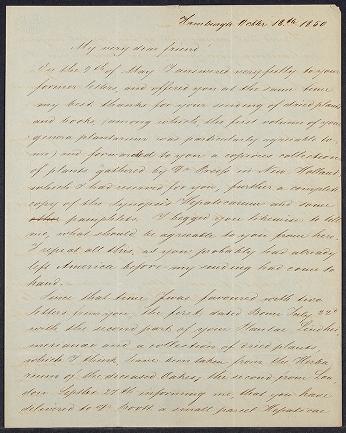 Hamburgh Octbr 18th 1850
My very dear friend!
On the 9th of May I answered very fully to your
former letters, and offered you at the same time
my best thanks for your sending of dried plants
and books (among which, the first volume of your
genera plantarum was particularly agreeable to
me) and forwarded to you a copious collection
of plants gathered by Dr Preiss in New Holland,
which I had reserved for you, further a complete
copy of the Synopsis Hepaticarum and some
pamphlets. I begged you likewise to tell
me, what should be agreeable to you from here.
I repeat all this, as you probably had already
left America before my sending had come to
hand.
Since that time I was favoured with two
letters from you, the first dated July 22d
with the second part of your Plantae Lindhei-
merianae and a collection of dried plants
which I think, have been taken from the Herba-
rium of the deceased Oakes, the second from Lon-
don Septbr 27th informing me, that you have
delivered to Dr a small parcel Hepaticae